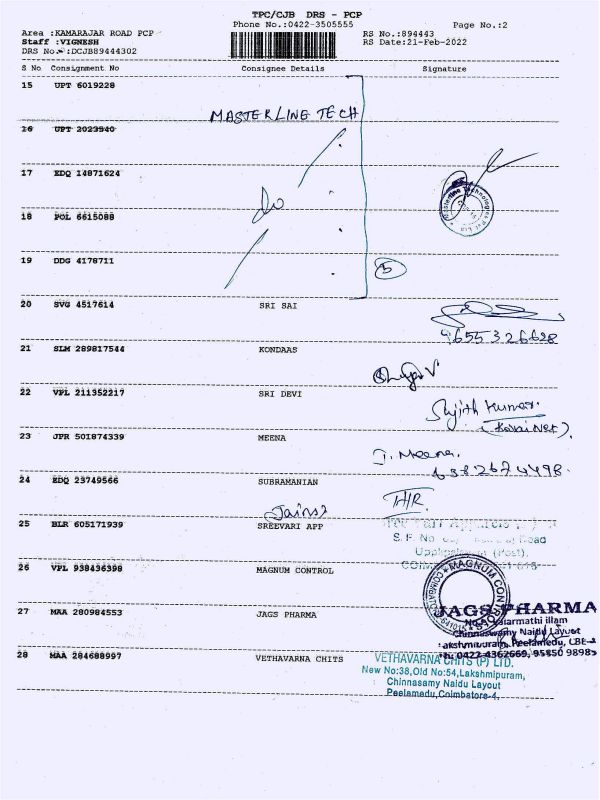 TPC/CJB DRS - PCP
Phone No.:0422-3505555 Page No.:2
Area :KAMARAJAR ROAD PCP RS No.:894443
Staff :VIGNESH RS Date:21-Feb-2022
DRS No :DCJB89444302
S No Consignment No Consignee Details Signature
15 UPT 6019228
MASTERLINE TECH
16 UPT 2023940
17 EDQ 14871624
Do
18 POL 6615088
19 DDG 4178711
5
20 SVG 4517614 SRI SAI
9655326628
21 SLM 289817544 KONDAAS
22 VPL 211352217 SRI DEVI
Sujith Kumar.
(Kovai Net).
23 JPR 501874339 MEENA
J. Meena.
6382674498.
24 EDQ 23749566 SUBRAMANIAN
25 BLR 605171939 SREEVARI APP
S. F. No
Road
(Post).
26 VPL 938436398 MAGNUM CONTROL
MAGNUM
27 MAA 280984553 JAGS PHARMA
JAGS PHARMA
illam
Chinnaswamy Naidu Layout
Lakshmipuram, Peelamedu, CBE-4
Ph: 0422-4362669, 95850 98985
28 MAA 284688997 VETHAVARNA CHITS
VETHAVARNA CHITS (P) LTD.
New No:38,Old No:54,Lakshmipuram,
Chinnasamy Naidu Layout
Peelamedu,Coimbatore-4.